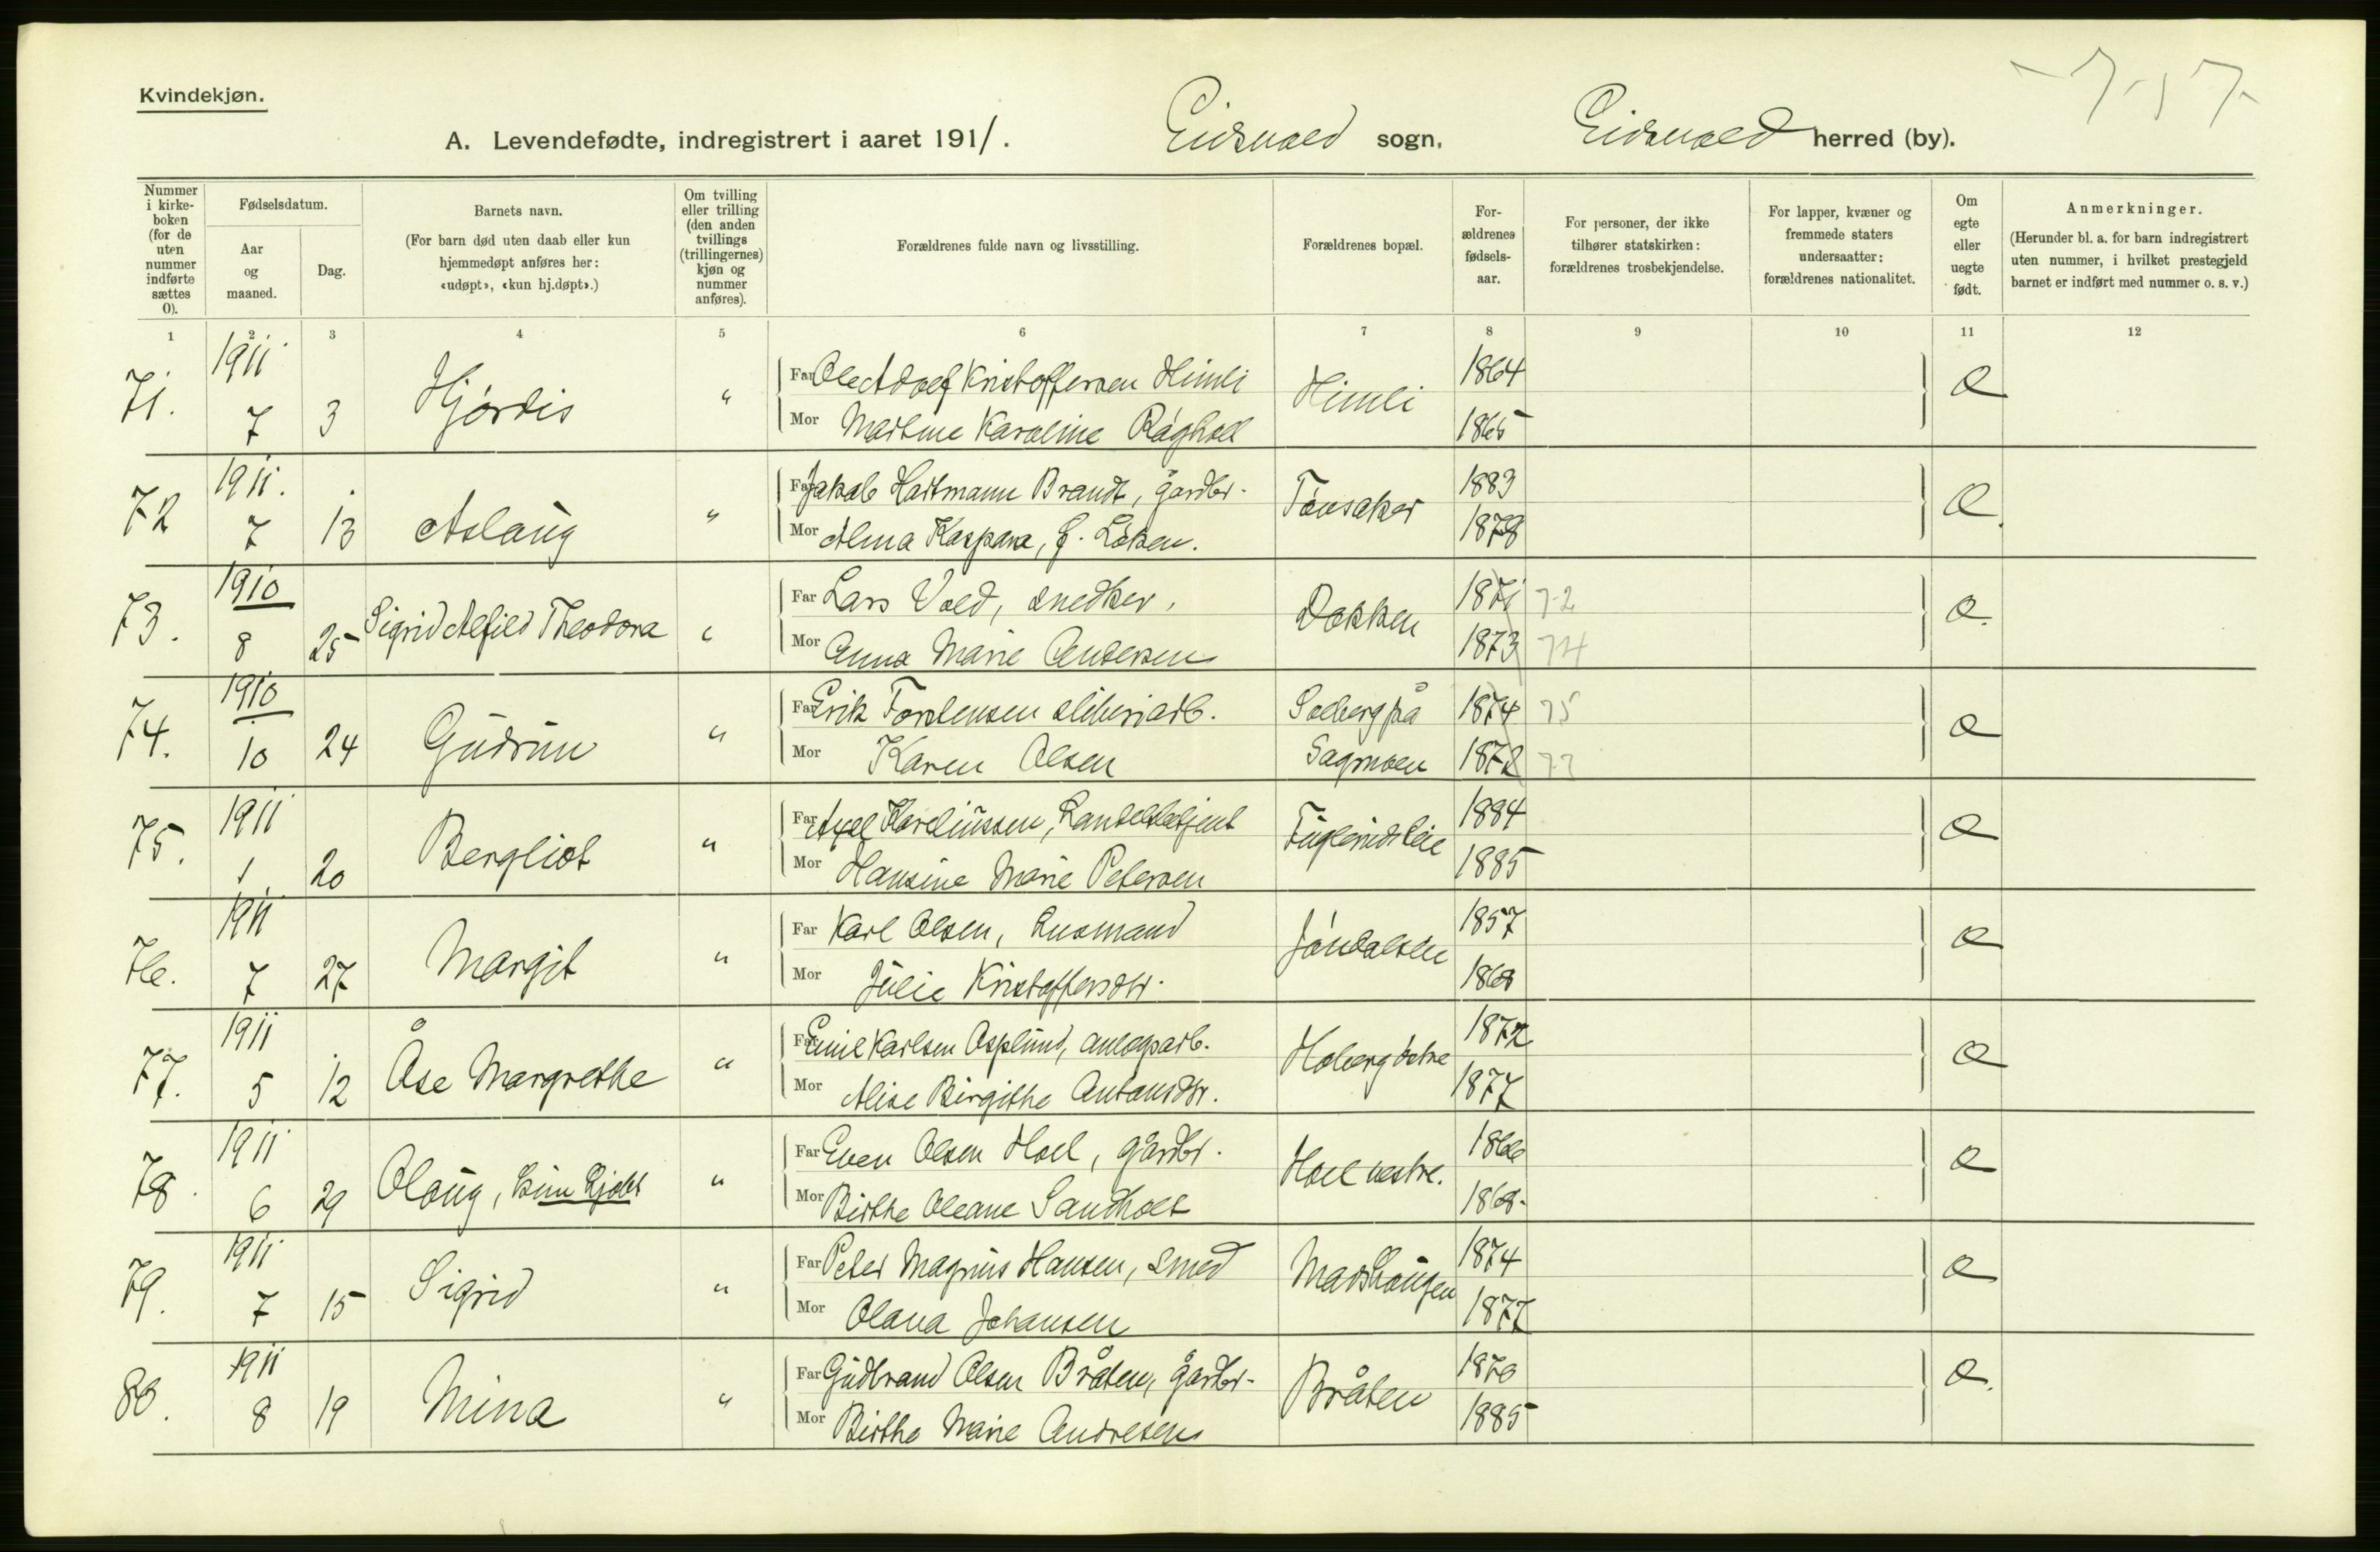 Kvindekjøn.
-7-17-
A. Levendefødte, indregistrert i aaret 1911. Eidsvold sogn, Eidsvold herred (by).
Nummer i kirkeboken (for de uten nummer indførte sættes 0).
Fødselsdatum.
Aar og maaned.
Dag.
Barnets navn.
(For barn død uten daab eller kun hjemmedøpt anføres her: «udøpt», «kun hj.døpt».)
Om tvilling eller trilling (den anden tvillings (trillingernes) kjøn og nummer anføres).
Forældrenes fulde navn og livsstilling.
Forældrenes bopæl.
Forældrenes fødselsaar.
For personer, der ikke tilhører statskirken: forældrenes trosbekjendelse.
For lapper, kvæner og fremmede staters undersaatter: forældrenes nationalitet.
Om egte eller uegte født.
Anmerkninger.
(Herunder bl. a. for barn indregistrert uten nummer, i hvilket prestegjeld barnet er indført med nummer o. s. v.)
1 2 3 4 5 6 7 8 9 10 11 12
71. 1911 7 3 Hjørdis " Far Ole Adolf Kristoffersen Himli Himli 1864 Æ
Mor Martine Karoline Rågholt 1865
72 1911. 7 13 Aslaug " Far Jakob Hartmann Brandt, gårdbr. Tønsaker 1883 Æ.
Mor Alma Kaspara, f. Løken. 1878
73. 1910 8 25 Sigrid Alfild Theodora " Far Lars Vold, snedker, Dokken 1871 72 Æ.
Mor Anna Marie Andersen 1873 74
74. 1910 10 24 Gudrun " Far Erik Torstensen sliberiarb. Solberg på 1874 75 Æ
Mor Karen Olsen Sagmoen 1872 73
75. 1911 1 20 Bergliot " Far Axel Kareliussen, Landhbetjent 1884 Æ
Mor Hansine Marie Petersen 1885
76. 1911 7 27 Margit " Far Karl Olsen, husmand 1857 Æ
Mor Julie Kristoffersdtr. 1868
77. 1911 5 12 Åse Margrethe " Far Emil Karlsen Asplund, anlægsarb. Hoberg østre 1872 Æ
Mor Alise Birgithe Antonsdtr. 1877
78. 1911 6 29 Olaug, kun hjdbt " Far Even Olsen Hoel, gårdbr. Hoel vestre. 1866 Æ
Mor Birthe Oleane Sandholt 1868.
79. 1911 7 15 Sigrid " Far Peter Magnus Hansen, smed Madshaugen 1874 Æ
Mor Olava Johansen 1877
80. 1911 8 19 Mina " Far Gudbrand Olsen Bråten, gårdbr. Bråten 1876 Æ.
Mor Birthe Marie Andresen 1885